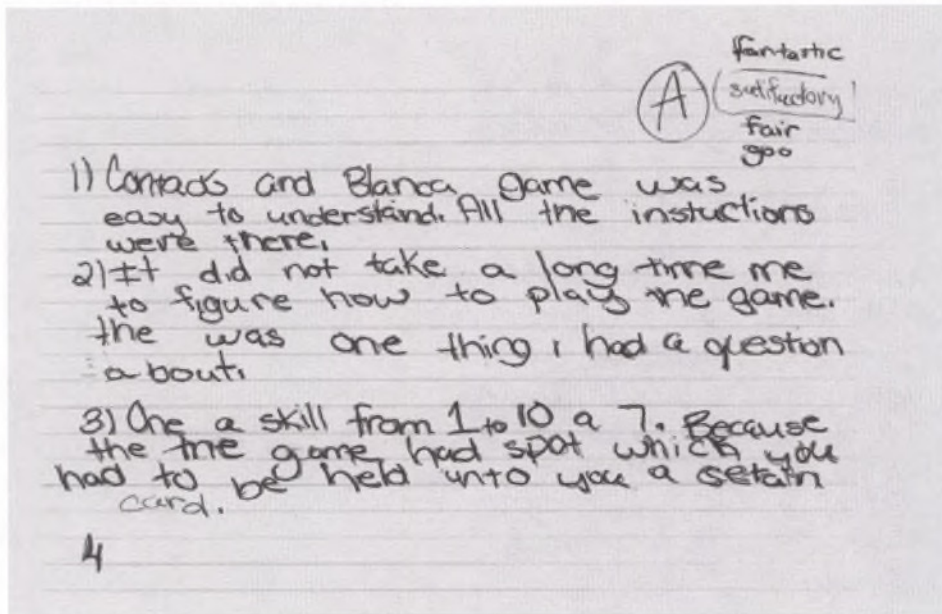 fantastic
A
satifactory
fair
goo
1) Contados and Blanca game was
easy to understand. All the instuctions
were there.
2) It did not take a long time me
to figure how to play the game.
the was one thing i had a question
about.
3) One a skill from 1 to 10 a 7. Because
the the game had spot which you
had to be held unto you a setain
card.
4